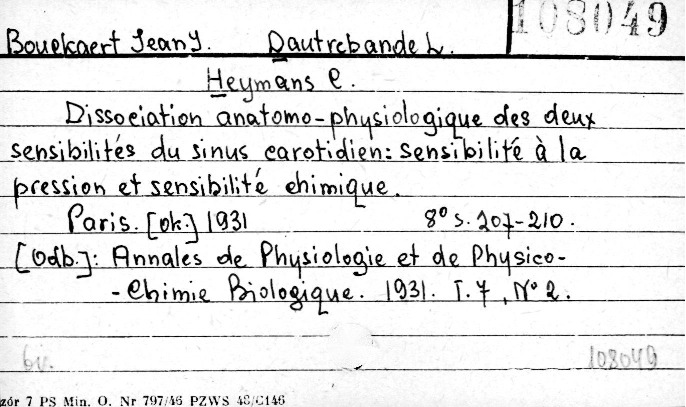 108049
Bouckaert Jean J. Dautrebande L.
Heymans C.
Dissociation anatomo-physiologique des deux
sensibilités du sinus carotidien: sensibilité à la
pression et sensibilité chimique.
Paris. [ok.] 1931 8° s. 207-210.
[Odb.]: Annales de Physiologie et de Physico-
-Chimie Biologique. 1931. T. 7, N° 2.
bv. 108049
zór 7 PS Min. O. Nr 797/46 PZWS 48/C146